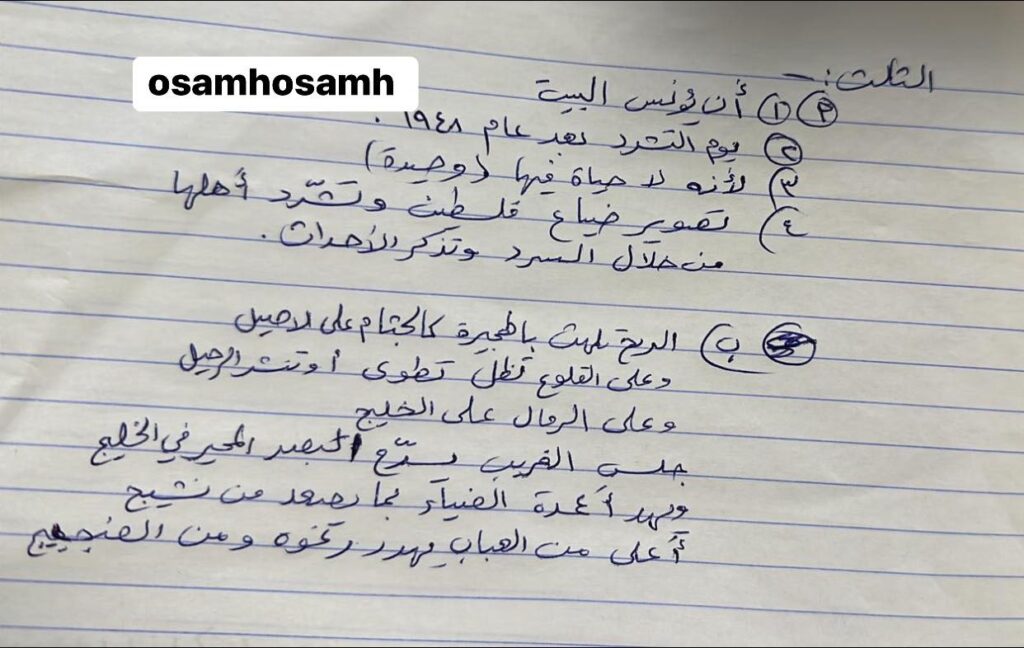 osamhosamh
الثالث :-
P) ① أن يؤنس البيت
② يوم التشرد بعد عام ١٩٤٨ .
٣) لأنه لا حياة فيها (وحيدة)
٤) تصوير ضياع فلسطين وتشرّد أهلها
من خلال السرد وتذكر الأحداث .
ب) الريح تلهث بالهجيرة كالجثام على الاصيل
وعلى القلوع تظل تطوى أو تنشر للرحيل
وعلى الرمال على الخليج
جلس الغريب يسرّح البصر المحير في الخليج
ويهد أعمدة الضياء بما يصعد من نشيج
أعلى من العباب يهدر رغوه ومن الضجيج